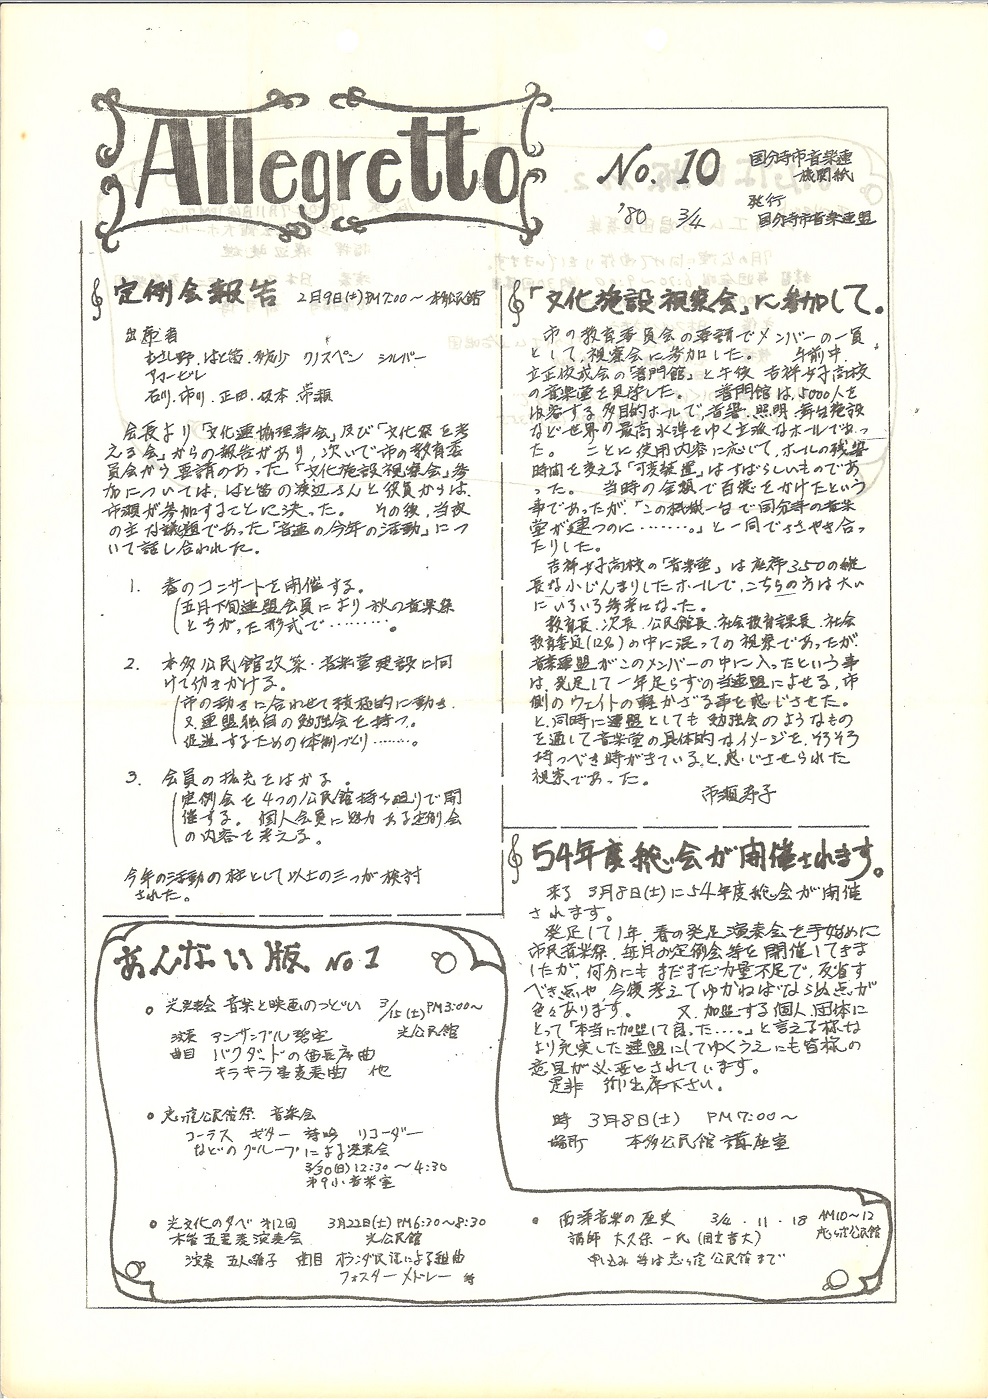 Allegretto
No. 10
'80 3/4
国分寺市音楽連
機関紙
発行
国分寺市音楽連盟
定例会報告 2月9日(土)PM7:00〜 本多公民館
出席者
むさし野、はと笛、クリスペン シルバー
石川、市川、正田、坂本、市瀬
会長より「文化連協理事会」及び「文化祭を考
える会」からの報告があり、次いで市の教育委
員会から要請のあった「文化施設視察会」参
加については、はと笛の渡辺さんと役員からは、
市瀬が参加することに決った。 その後、当夜
の主な議題であった「音連の今年の活動」につ
いて話し合われた。
1. 春のコンサートを開催する。
五月下旬連盟会員により秋の音楽祭
とちがった形式で………。
2. 本多公民館改築・音楽堂建設に向
けて働きかける。
市の動きに合わせて積極的に動き、
又連盟独自の勉強会を持つ。
促進するための体制づくり………。
3. 会員の拡充をはかる。
定例会を4つの公民館持ち廻りで開
催する。個人会員に魅力ある定例会
の内容を考える。
今年の活動の柱として以上の三つが検討
された。
「文化施設視察会」に参加して。
市の教育委員会の要請でメンバーの一員
として、視察会に参加した。 午前中、
立正佼成会の「普門館」と午後 吉祥女子高校
の音楽堂を見学した。 普門館は、5000人を
収容する多目的ホールで、音響、照明、舞台施設
など世界の最高水準をゆく立派なホールであっ
た。 ことに使用内容に応じて、ホールの残響
時間を考える「可変装置」はすばらしいものであ
った。 当時の金額で百億をかけたという
事であったが、「この機械一台で国分寺の音楽
堂が建つのに………。」と一同でささやき合っ
たりした。
吉祥女子高校の「音楽堂」は座席350の縦
長な小じんまりしたホールで、こちらの方は大い
にいろいろ参考になった。
教育長、次長、公民館長、社会教育課長、社会
教育委員(12名)の中に混っての視察であったが、
音楽連盟がこのメンバーの中に入ったという事
は、発足して一年足らずの当連盟によせる、市
側のウェイトの軽からざる事を感じさせた。
と、同時に連盟としても勉強会のようなもの
を通して音楽堂の具体的なイメージを、そろそろ
持つべき時がきている、と、感じさせられた
視察であった。
市瀬寿子
54年度総会が開催されます。
来る 3月8日(土)に54年度総会が開催
されます。
発足して1年、春の発足演奏会を手始めに
市民音楽祭、毎月の定例会等を開催してきま
したが、何分にもまだまだ力量不足で、反省す
べき点や、今後考えてゆかねばならぬ点が
色々あります。 又、加盟する個人、団体に
とって「本当に加盟して良った……。」と言える様な
より充実した連盟にしてゆくうえにも皆様の
意見が必要とされています。
是非 御出席下さい。
時 3月8日(土) PM7:00〜
場所 本多公民館 講座室
あんない版 No1
光発表会 音楽と映画のつどい 3/15(土)PM3:00〜
光公民館
演奏 アンサンブル碧空
曲目 バクダッドの酋長序曲
キラキラ星変奏曲 他
恋ヶ窪公民館祭 音楽会
コーラス ギター 詩吟 リコーダー
などのグループによる発表会
3/30(日)12:30〜4:30
第9小 音楽室
光文化の夕べ 第12回 3月22日(土)PM6:30〜8:30
木管五重奏演奏会 光公民館
演奏 五人囃子 曲目 オランダ民謡による組曲
フォスターメドレー 等
西洋音楽の歴史 3/4・11・18 AM10〜12
恋ヶ窪公民館
講師 大久保一氏(国立音大)
申し込み等は恋ヶ窪公民館まで